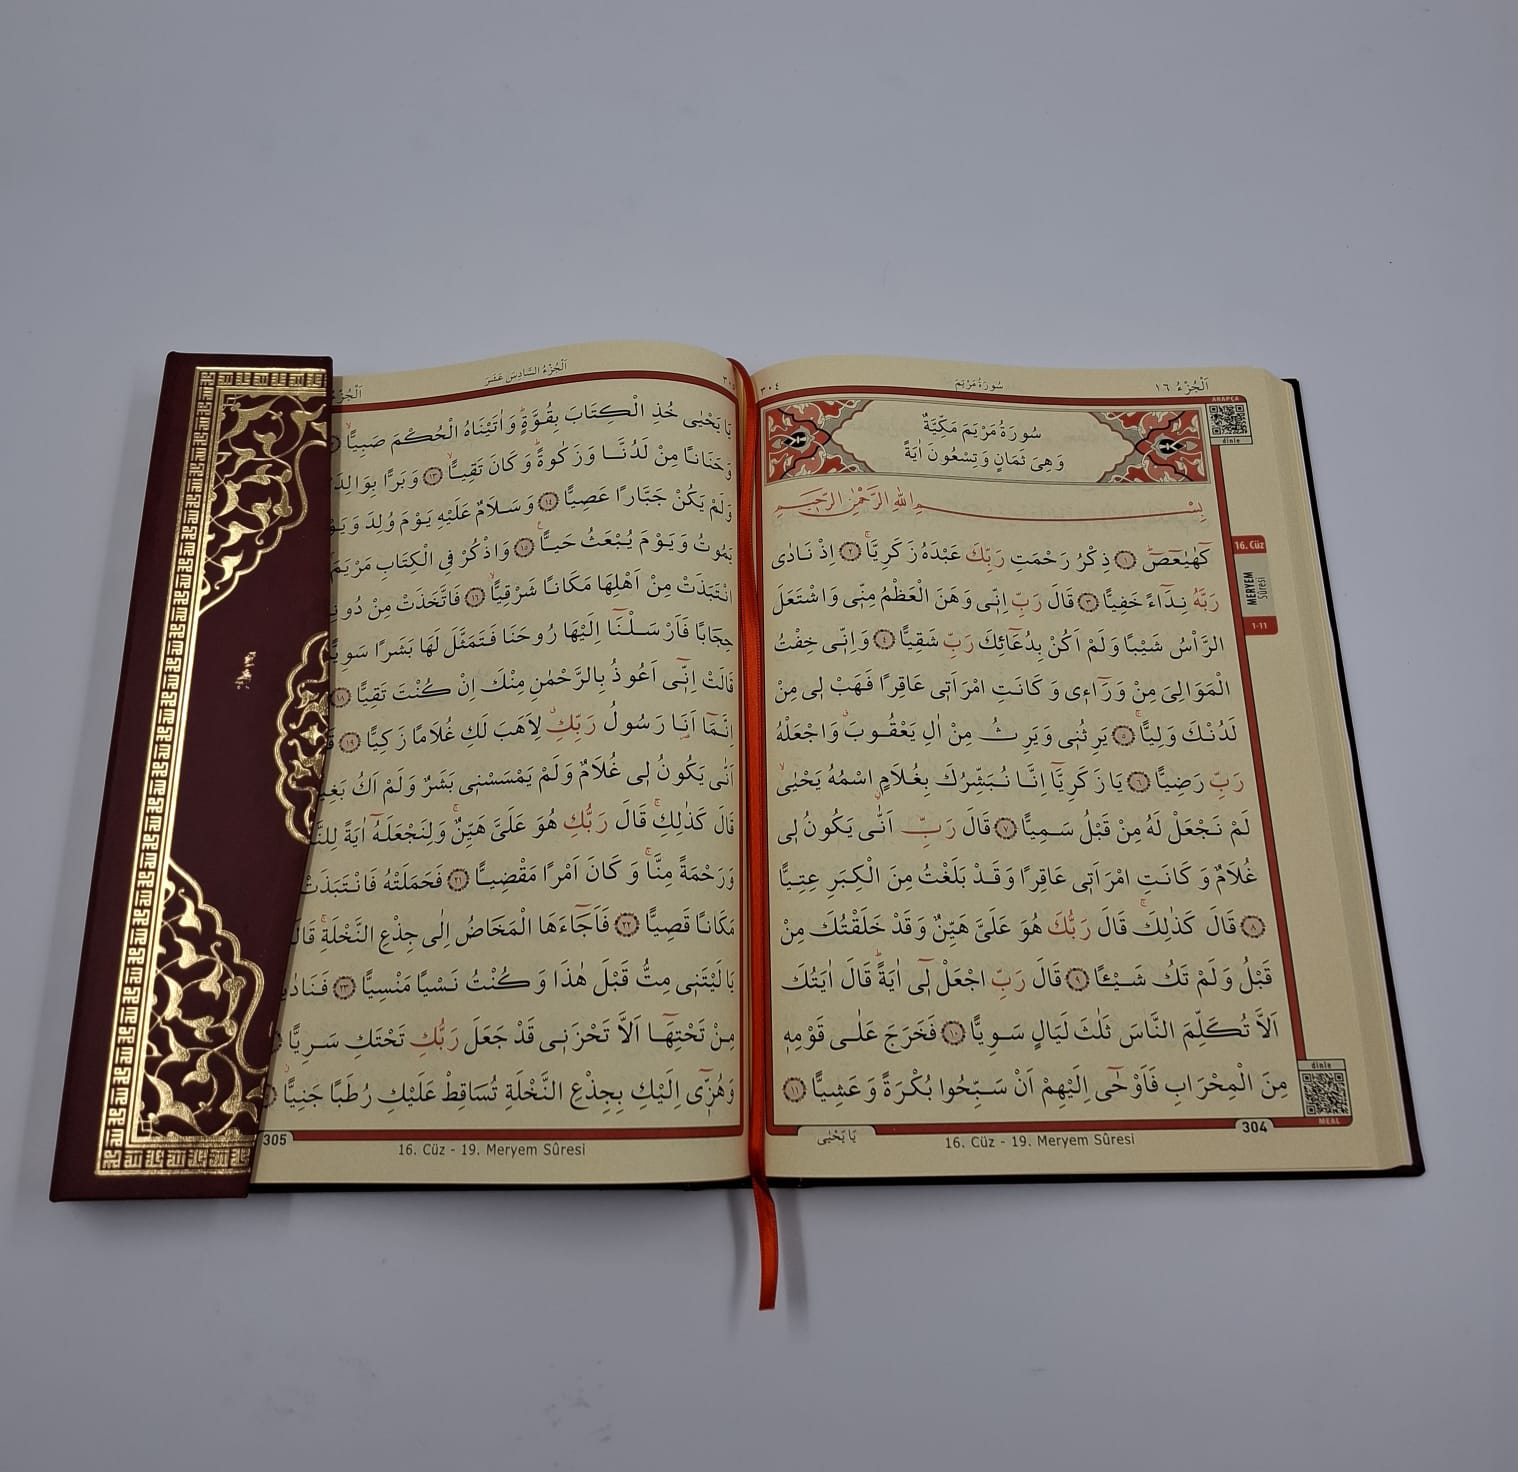 اَلْجُزْءُ ١٦
سُورَةُ مَرْيَمَ
٣٠٤
ARAPÇA
dinle
سُورَةُ مَرْيَمَ مَكِّيَّةٌ
وَهِىَ ثَمَانٍ وَتِسْعُونَ اٰيَةً
بِسْمِ اللهِ الرَّحْمٰنِ الرَّحِيمِ
كٓهٰيٰعٓصٓ ۝١ ذِكْرُ رَحْمَتِ رَبِّكَ عَبْدَهُ زَكَرِيَّاۚ ۝٢ اِذْ نَادٰى
رَبَّهُ نِدَٓاءً خَفِيًّا ۝٣ قَالَ رَبِّ اِنّ۪ى وَهَنَ الْعَظْمُ مِنّ۪ى وَاشْتَعَلَ
الرَّاْسُ شَيْبًا وَلَمْ اَكُنْ بِدُعَٓائِكَ رَبِّ شَقِيًّا ۝٤ وَاِنّ۪ى خِفْتُ
الْمَوَالِىَ مِنْ وَرَٓاء۪ى وَكَانَتِ امْرَاَت۪ى عَاقِرًا فَهَبْ ل۪ى مِنْ
لَدُنْكَ وَلِيًّاۙ ۝٥ يَرِثُن۪ى وَيَرِثُ مِنْ اٰلِ يَعْقُوبَۗ وَاجْعَلْهُ
رَبِّ رَضِيًّا ۝٦ يَا زَكَرِيَّٓا اِنَّا نُبَشِّرُكَ بِغُلَامٍۨ اسْمُهُ يَحْيٰىۙ
لَمْ نَجْعَلْ لَهُ مِنْ قَبْلُ سَمِيًّا ۝٧ قَالَ رَبِّ اَنّٰى يَكُونُ ل۪ى
غُلَامٌ وَكَانَتِ امْرَاَت۪ى عَاقِرًا وَقَدْ بَلَغْتُ مِنَ الْكِبَرِ عِتِيًّا
۝٨ قَالَ كَذٰلِكَۚ قَالَ رَبُّكَ هُوَ عَلَىَّ هَيِّنٌ وَقَدْ خَلَقْتُكَ مِنْ
قَبْلُ وَلَمْ تَكُ شَيْـًٔا ۝٩ قَالَ رَبِّ اجْعَلْ ل۪ٓى اٰيَةًۜ قَالَ اٰيَتُكَ
اَلَّا تُكَلِّمَ النَّاسَ ثَلٰثَ لَيَالٍ سَوِيًّا ۝١٠ فَخَرَجَ عَلٰى قَوْمِه۪
مِنَ الْمِحْرَابِ فَاَوْحٰٓى اِلَيْهِمْ اَنْ سَبِّحُوا بُكْرَةً وَعَشِيًّا ۝١١
16. Cüz
MERYEM
Sûresi
1-11
dinle
MEAL
304
يَا يَحْيٰى
16. Cüz - 19. Meryem Sûresi
اَلْجُزْءُ السَّادِسَ عَشَرَ
يَا يَحْيٰى خُذِ الْكِتَابَ بِقُوَّةٍۜ وَاٰتَيْنَاهُ الْحُكْمَ صَبِيًّاۙ
وَحَنَانًا مِنْ لَدُنَّا وَزَكٰوةًۜ وَكَانَ تَقِيًّاۙ ۝١٣ وَبَرًّا
وَلَمْ يَكُنْ جَبَّارًا عَصِيًّا ۝١٤ وَسَلَامٌ عَلَيْهِ يَوْمَ وُلِدَ
يَمُوتُ وَيَوْمَ يُبْعَثُ حَيًّا۟ ۝١٥ وَاذْكُرْ فِى الْكِتَابِ مَرْيَمَ
انْتَبَذَتْ مِنْ اَهْلِهَا مَكَانًا شَرْقِيًّاۙ ۝١٦ فَاتَّخَذَتْ مِنْ
حِجَابًا فَاَرْسَلْنَٓا اِلَيْهَا رُوحَنَا فَتَمَثَّلَ لَهَا بَشَرًا سَوِيًّا
قَالَتْ اِنّ۪ٓى اَعُوذُ بِالرَّحْمٰنِ مِنْكَ اِنْ كُنْتَ تَقِيًّا ۝١٨
اِنَّمَٓا اَنَا۬ رَسُولُ رَبِّكِۗ لِاَهَبَ لَكِ غُلَامًا زَكِيًّا ۝١٩
اَنّٰى يَكُونُ ل۪ى غُلَامٌ وَلَمْ يَمْسَسْن۪ى بَشَرٌ وَلَمْ اَكُ
قَالَ كَذٰلِكِۚ قَالَ رَبُّكِ هُوَ عَلَىَّ هَيِّنٌۚ وَلِنَجْعَلَهُٓ اٰيَةً
وَرَحْمَةً مِنَّاۚ وَكَانَ اَمْرًا مَقْضِيًّا ۝٢١ فَحَمَلَتْهُ فَانْتَبَذَتْ
مَكَانًا قَصِيًّا ۝٢٢ فَاَجَٓاءَهَا الْمَخَاضُ اِلٰى جِذْعِ النَّخْلَةِۚ
يَا لَيْتَن۪ى مِتُّ قَبْلَ هٰذَا وَكُنْتُ نَسْيًا مَنْسِيًّا ۝٢٣
مِنْ تَحْتِهَٓا اَلَّا تَحْزَن۪ى قَدْ جَعَلَ رَبُّكِ تَحْتَكِ سَرِيًّا
وَهُزّ۪ٓى اِلَيْكِ بِجِذْعِ النَّخْلَةِ تُسَاقِطْ عَلَيْكِ رُطَبًا جَنِيًّاۙ
305
16. Cüz - 19. Meryem Sûresi